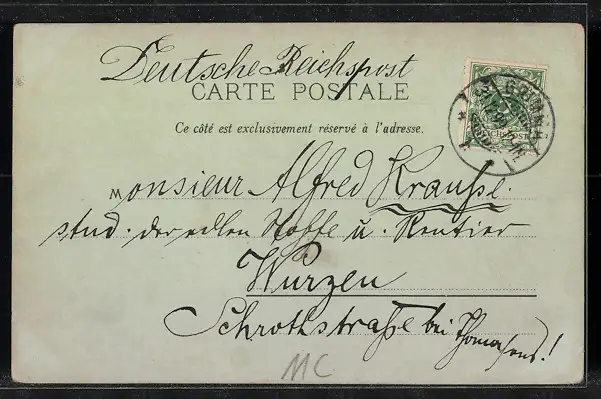 Deutsche Reichspost
CARTE POSTALE
Ce côté est exclusivement réservé à l'adresse.
Monsieur Alfred Krauße.
stud. der edlen Hoffe u. Rentier
Wurzen
Schrothstraße bei
MC